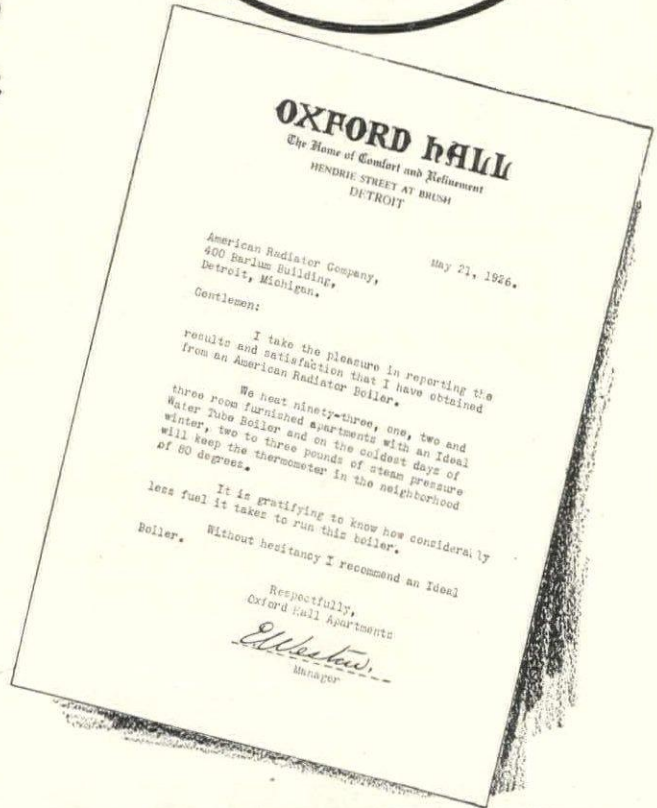 OXFORD hALL
The Home of Comfort and Refinement
HENDRIE STREET AT BRUSH
DETROIT
May 21, 1926.
American Radiator Company,
400 Barlum Building,
Detroit, Michigan.
Gentlemen:
I take the pleasure in reporting the
results and satisfaction that I have obtained
from an American Radiator Boiler.
We heat ninety-three, one, two and
three room furnished apartments with an Ideal
Water Tube Boiler and on the coldest days of
winter, two to three pounds of steam pressure
will keep the thermometer in the neighborhood
of 80 degrees.
It is gratifying to know how considerally
less fuel it takes to run this boiler.
Without hesitancy I recommend an Ideal
Boiler.
Respectfully,
Oxford Hall Apartments
E Weston.
Manager